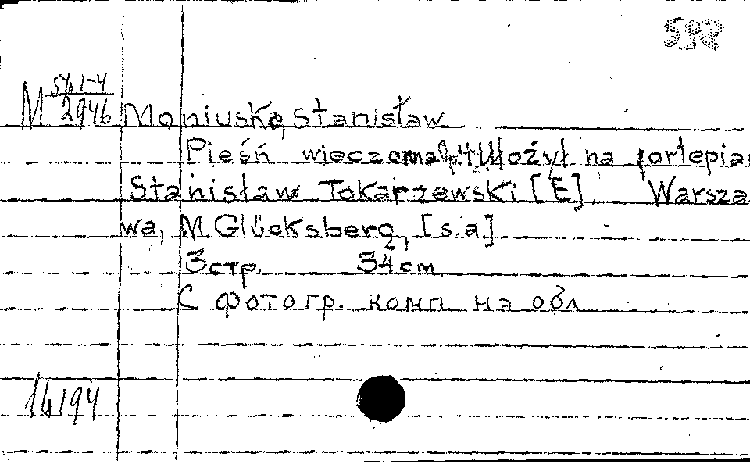 592
M 54 1-4
2946
Moniuško, Stanisław
Pieśń wieczorna Ułożył na fortepian
Stanisław Tokarzewski [E]. Warsza
wa, M. Glücksberg, [s.a]
3 стр. 34 см
С фотогр. комп на обл
14194